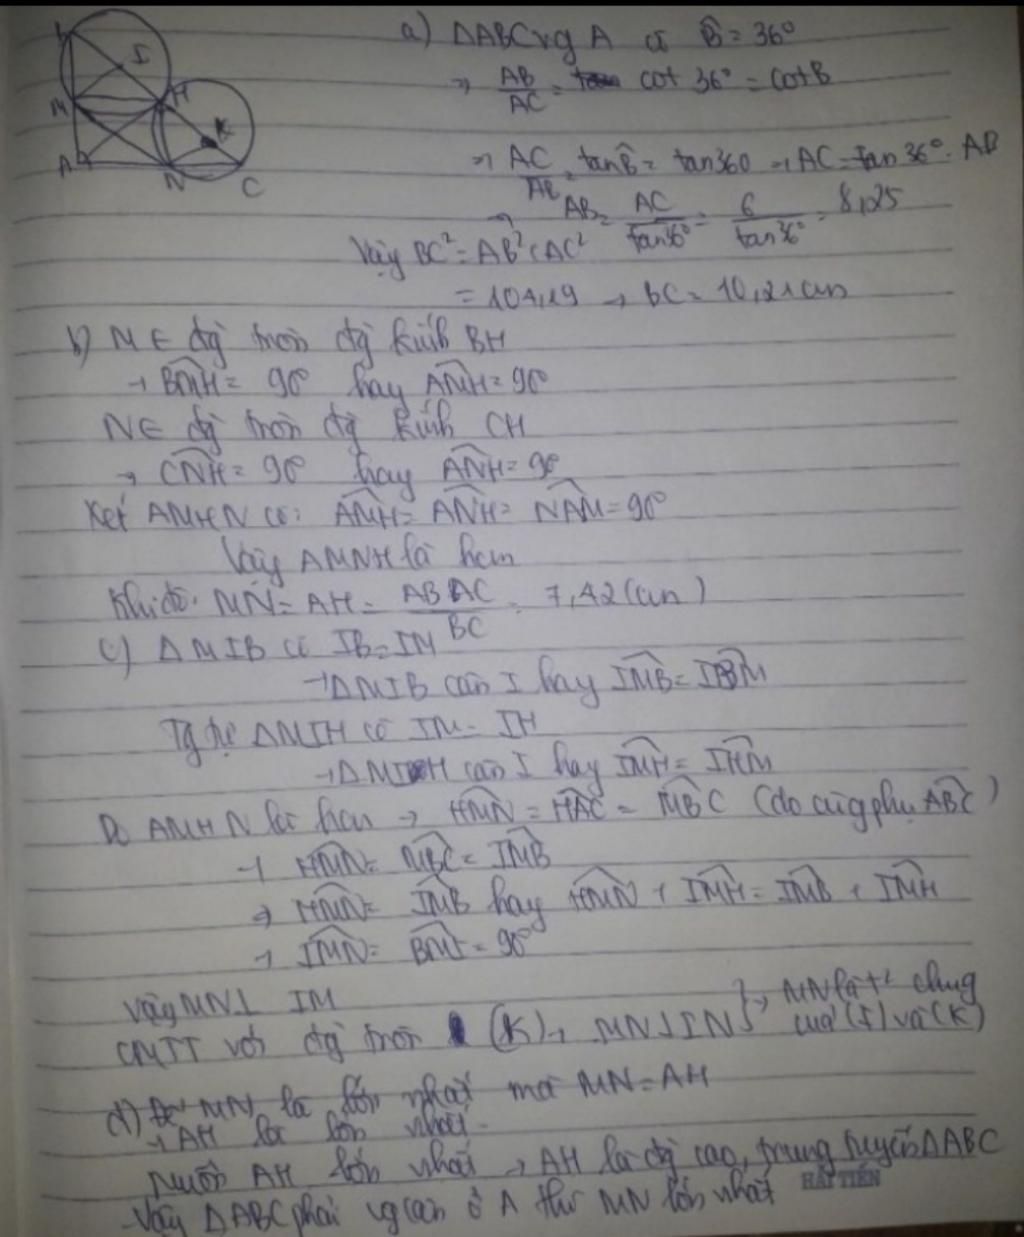 a) ΔABC vg A có B̂ = 36°
→ AB/AC = cot 36° = cot B
→ AC/AB = tan B̂ = tan 360 → AC = tan 36° . AB
→ AB = AC/tan36° = 6/tan36° = 8,25
Vậy BC² = AB² + AC²
= 104,19 → BC = 10,21 cm
b) M ∈ đg tròn đg kính BH
→ BMH = 90° hay AMH = 90°
N ∈ đg tròn đg kính CH
→ CNH = 90° hay ANH = 90°
Xét AMHN có: AMH = ANH = NAM = 90°
Vậy AMNH là hcn
Khi đó: MN = AH = AB.AC/BC = 7,42 (cm)
c) ΔMIB có IB = IM
→ ΔMIB cân I hay IMB = IBM
Tg tự ΔMIH có IM = IH
→ ΔMIH cân I hay IMH = IHM
Do AMHN là hcn → HMN = HAC = MBC (do cùng phụ ABC)
→ HMN = MBC = IMB
→ HMN = IMB hay HMN + IMH = IMB + IMH
→ IMN = BMI = 90°
Vậy MN ⊥ IM
CMTT với đg tròn (K) → MN ⊥ IN } → MN là t² chung của (I) và (K)
d) Để MN là lớn nhất mà MN = AH
→ AH là lớn nhất.
Muốn AH lớn nhất → AH là đg cao, trung tuyến ΔABC
Vậy ΔABC phải vg cân ở A thì MN lớn nhất
HẢI TIẾN
I
M
H
K
A
N
C